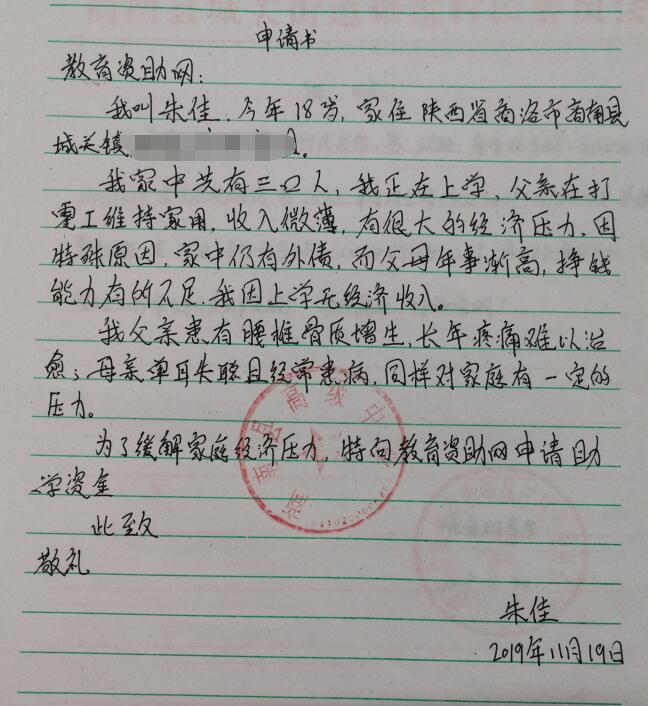 申请书
教育资助网：
我叫朱佳，今年18岁，家住陕西省商洛市商南县
城关镇
我家中共有三口人，我正在上学，父亲在打
重工维持家用，收入微薄，有很大的经济压力，因
特殊原因，家中仍有外债，而父母年事渐高，挣钱
能力有所不足，我因上学无经济收入。
我父亲患有腰椎骨质增生，长年疼痛难以治
愈；母亲单耳失聪且经常患病，同样对家庭有一定的
压力。
为了缓解家庭经济压力，特向教育资助网申请助
学资金
此致
敬礼
朱佳
2019年11月19日
县高级中